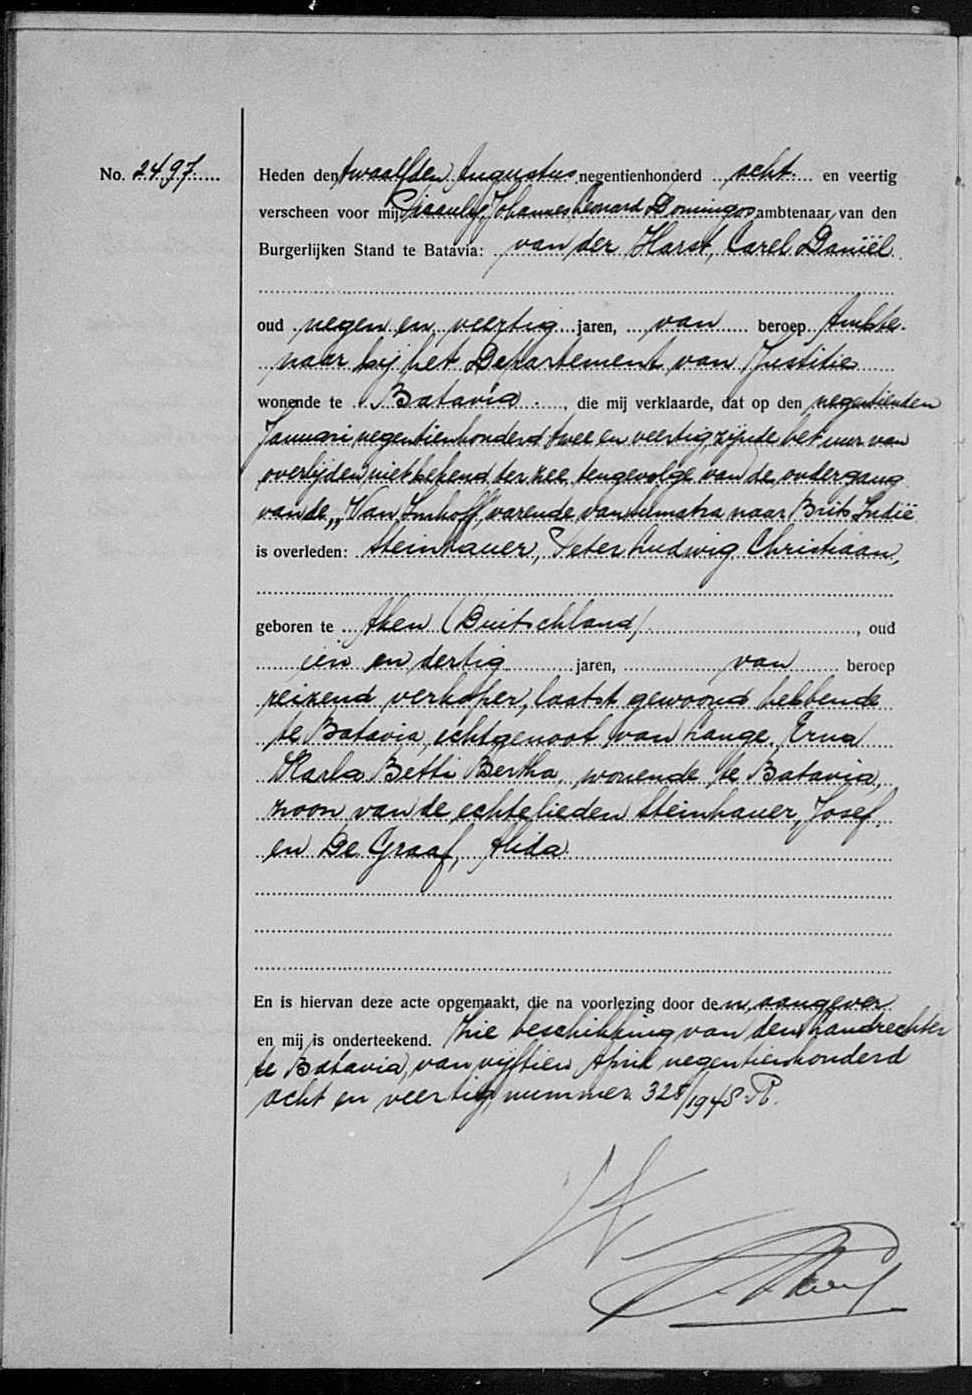 No. 2497
Heden den twaalfden Augustus negentienhonderd acht en veertig
verscheen voor mij Johannes Leonard Domingos ambtenaar van den
Burgerlijken Stand te Batavia: van der Harst, Carel Daniël
oud negen en veertig jaren, van beroep Ambte-
naar bij het Departement van Justitie
wonende te Batavia, die mij verklaarde, dat op den negentienden
Januari negentienhonderd twee en veertig, zijnde het uur van
overlijden niet bekend ter zee tengevolge van de ondergang
van de „Van Imhoff", varende van Sumatra naar Brits Indië
is overleden: Steinhauer, Peter Ludwig Christiaan,
geboren te Aken (Duitschland), oud
één en dertig jaren, van beroep
reizend verkoper, laatst gewoond hebbende
te Batavia, echtgenoot van Lange, Erna
Karla Betti Bertha, wonende te Batavia,
zoon van de echtelieden Steinhauer, Josef
en De Graaf, Alida.
En is hiervan deze acte opgemaakt, die na voorlezing door den aangever
en mij is onderteekend. Zie beschikking van den Landrechter
te Batavia, van vijftien April negentienhonderd
acht en veertig, nummer 328/1948 P.